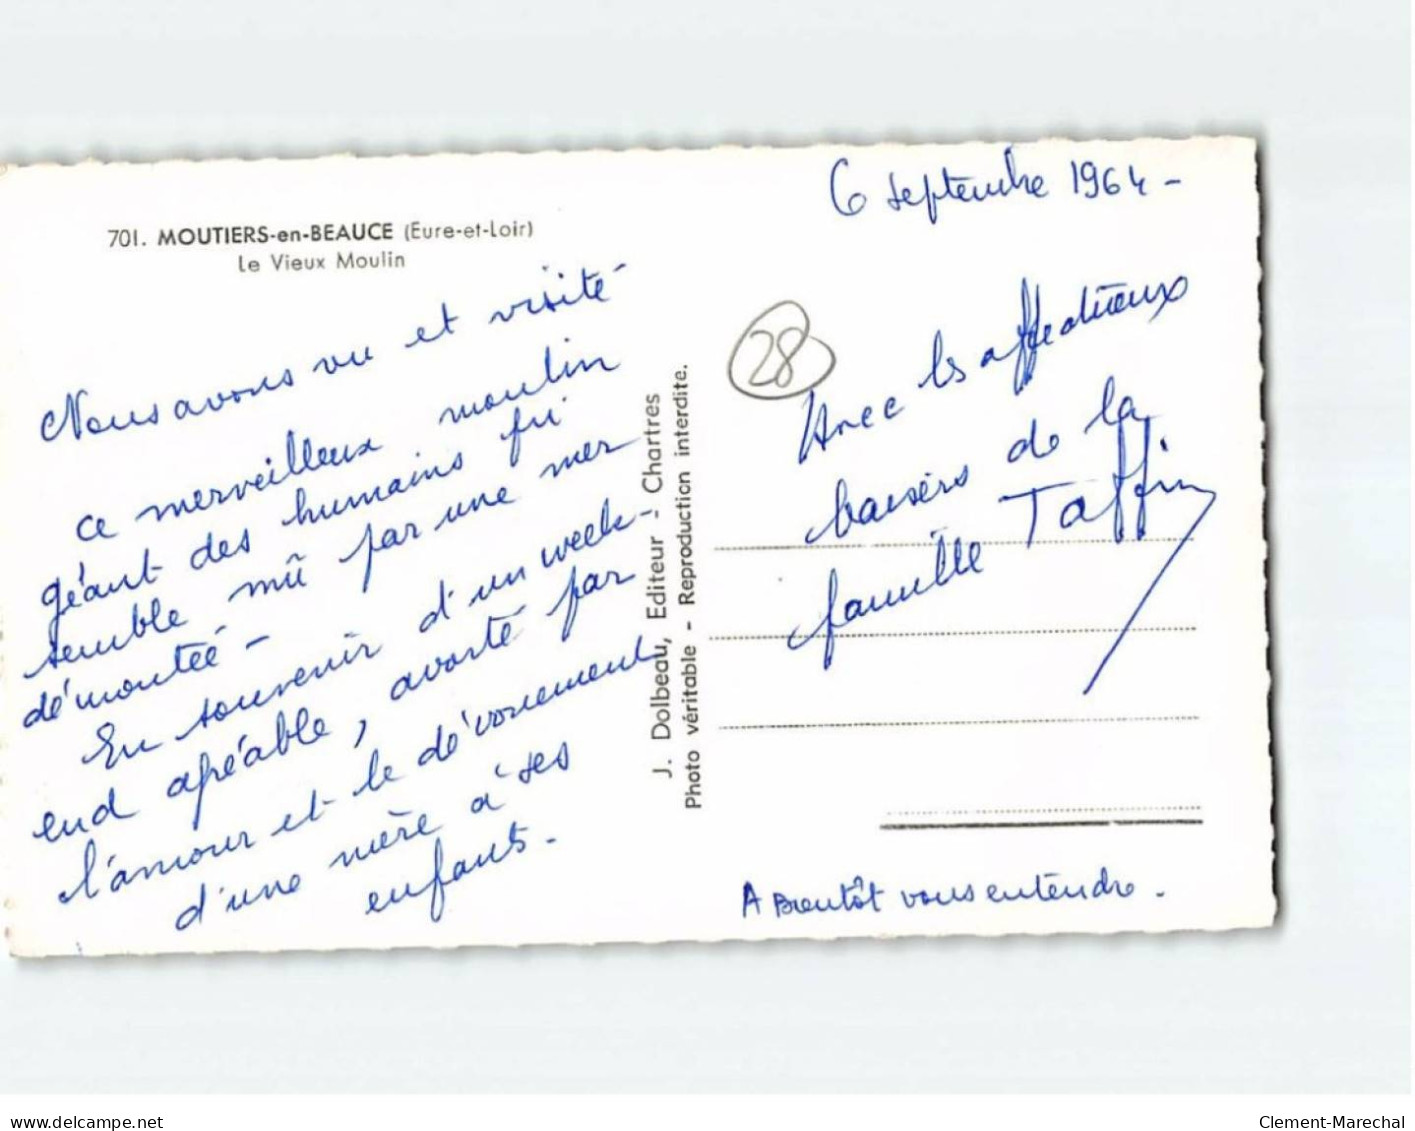 701. MOUTIERS-en-BEAUCE (Eure-et-Loir)
Le Vieux Moulin
Nous avons vu et visité
ce merveilleux moulin
géant des humains qui
semble mû par une mer
démontée -
En souvenir d'un week-
end agréable, avorté par
l'amour et le dévouement
d'une mère à ses
enfants.
J. Dolbeau, Editeur - Chartres
Photo véritable - Reproduction interdite.
6 septembre 1964 -
28
Avec ls affectueux
baisers de la
famille Taffin
A Bientôt vous entendre.
delcampe.net
Clement-Marechal